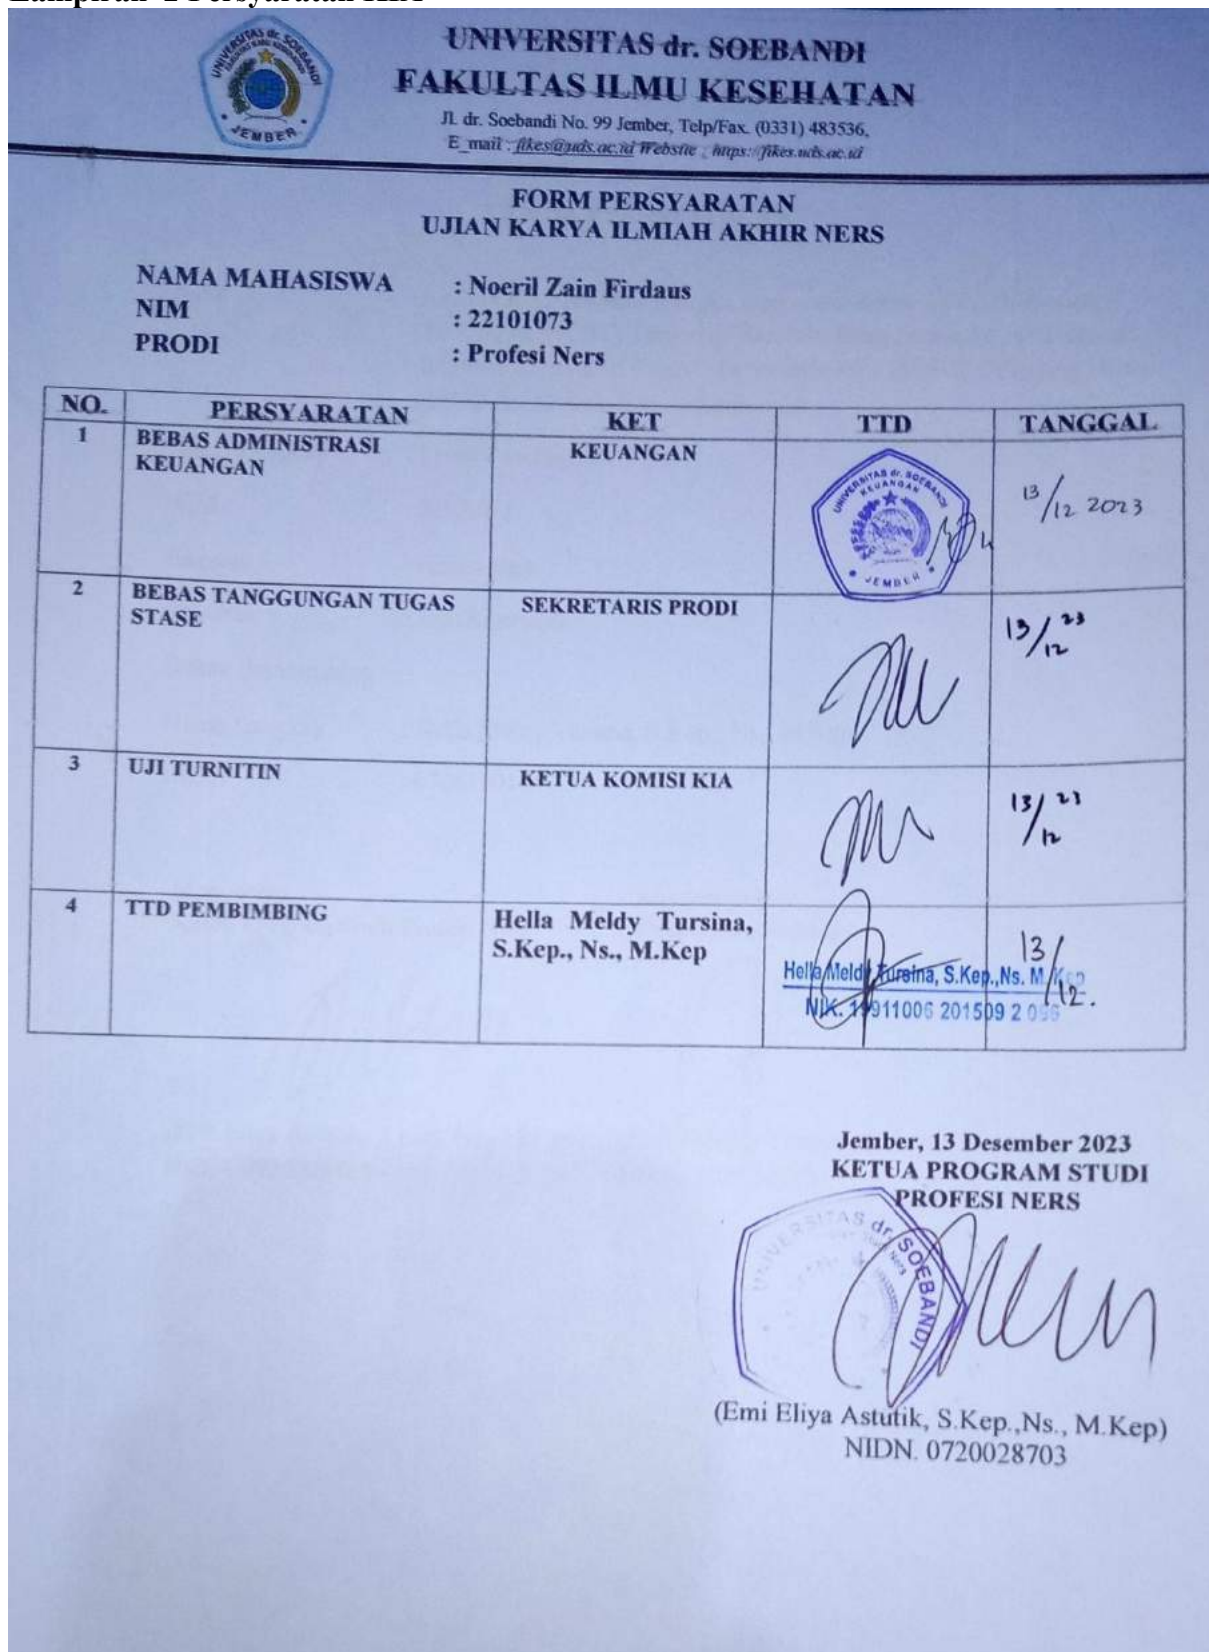 UNIVERSITAS dr. SOEBANDI
JEMBER
UNIVERSITAS dr. SOEBANDI
FAKULTAS ILMU KESEHATAN
Jl. dr. Soebandi No. 99 Jember, Telp/Fax. (0331) 483536,
E_mail : fikes@uds.ac.id Website : https://fikes.uds.ac.id
FORM PERSYARATAN
UJIAN KARYA ILMIAH AKHIR NERS
NAMA MAHASISWA : Noeril Zain Firdaus
NIM : 22101073
PRODI : Profesi Ners
NO. PERSYARATAN KET TTD TANGGAL
1 BEBAS ADMINISTRASI KEUANGAN 13/12 2023
KEUANGAN
UNIVERSITAS dr. SOEBANDI
KEUANGAN
JEMBER
2 BEBAS TANGGUNGAN TUGAS SEKRETARIS PRODI 13/12 23
STASE
3 UJI TURNITIN KETUA KOMISI KIA 13/12 23
4 TTD PEMBIMBING Hella Meldy Tursina, 13/12.
S.Kep., Ns., M.Kep
Hella Meldy Tursina, S.Kep.,Ns. M.Kep
NIK. 19911006 201509 2 096
Jember, 13 Desember 2023
KETUA PROGRAM STUDI
PROFESI NERS
UNIVERSITAS dr. SOEBANDI
(Emi Eliya Astutik, S.Kep.,Ns., M.Kep)
NIDN. 0720028703